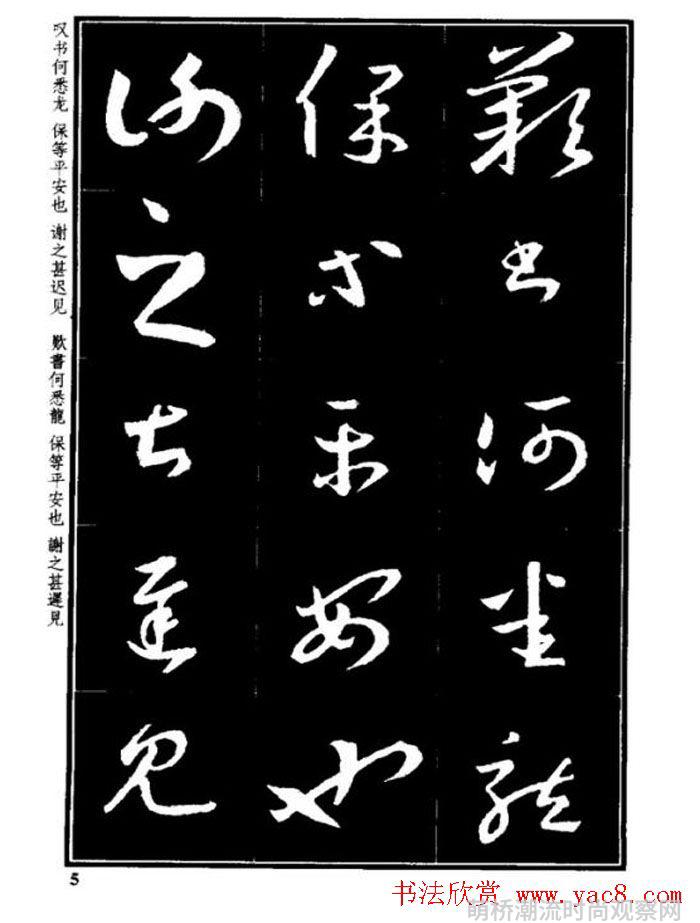 歎書何悉龍
保等平安也
謝之甚遲見
叹书何悉龙 保等平安也 谢之甚迟见 歎書何悉龍 保等平安也 謝之甚遲見
5
书法欣赏 www.yac8.com
萌桥潮流时尚观察网